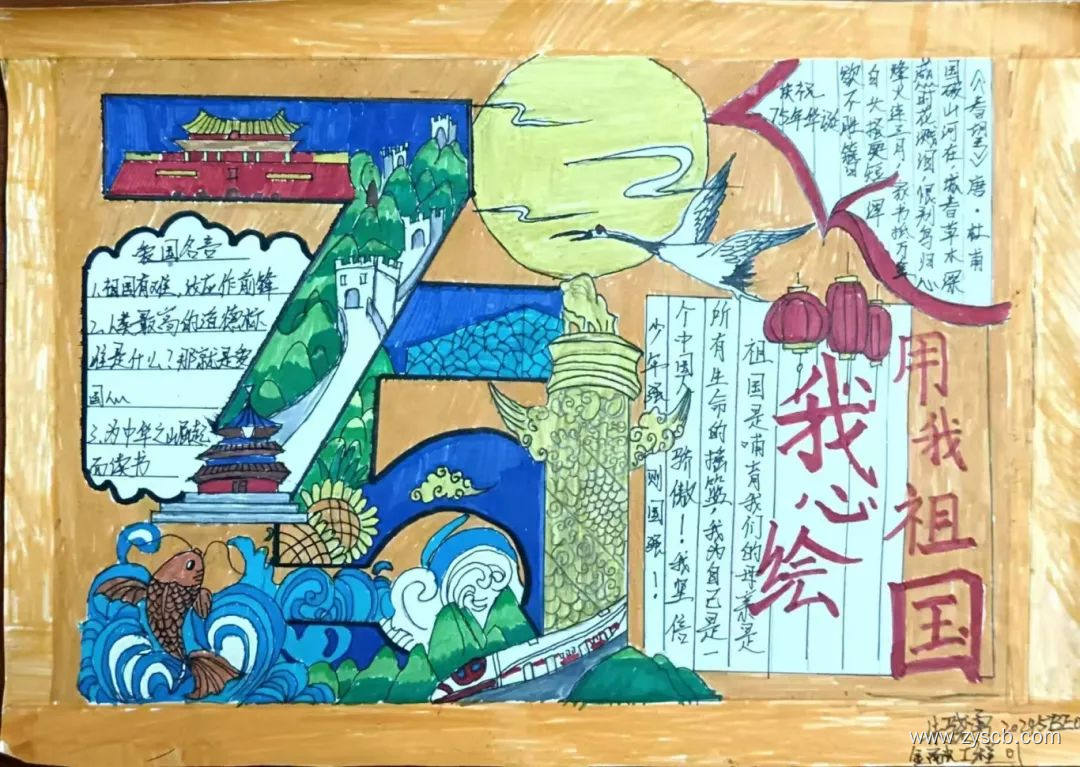 爱国名言
1.祖国有难,汝应作前锋
2.人类最高的道德标
准是什么?那就是爱
国心
3.为中华之崛起
而读书
《春望》唐·杜甫
国破山河在,城春草木深
感时花溅泪,恨别鸟归心
烽火连三月,家书抵万金
白头搔更短,浑
欲不胜簪
庆祝
75年华诞
用我祖国
我心绘
祖国是哺育我们的母亲是
所有生命的摇篮,我为自己是一
个中国人 骄傲!我坚信
少年强 则国强!
www.zyscb.com